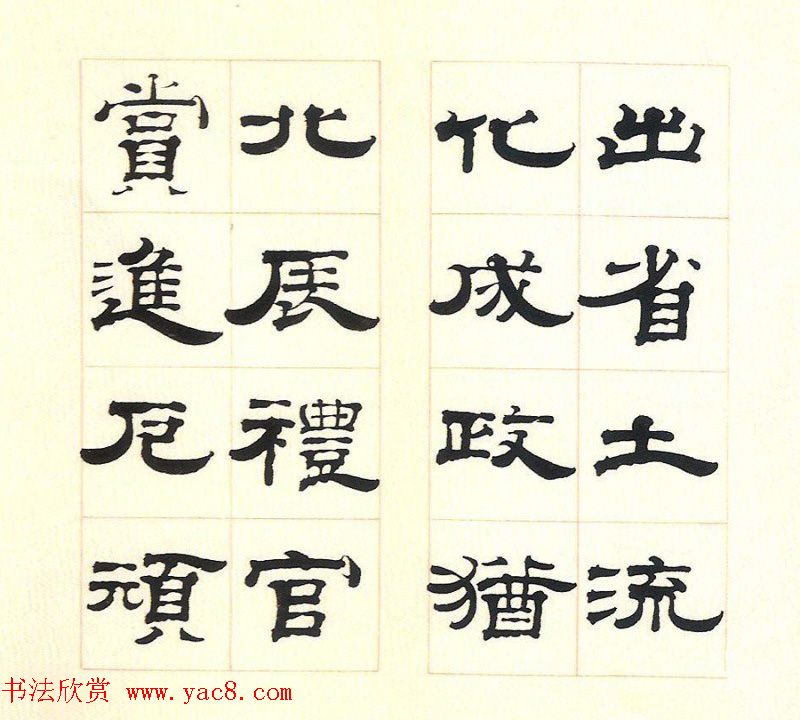 出省土流
化成政猶
北辰禮官
賞進厄頑
书法欣赏 www.yac8.com